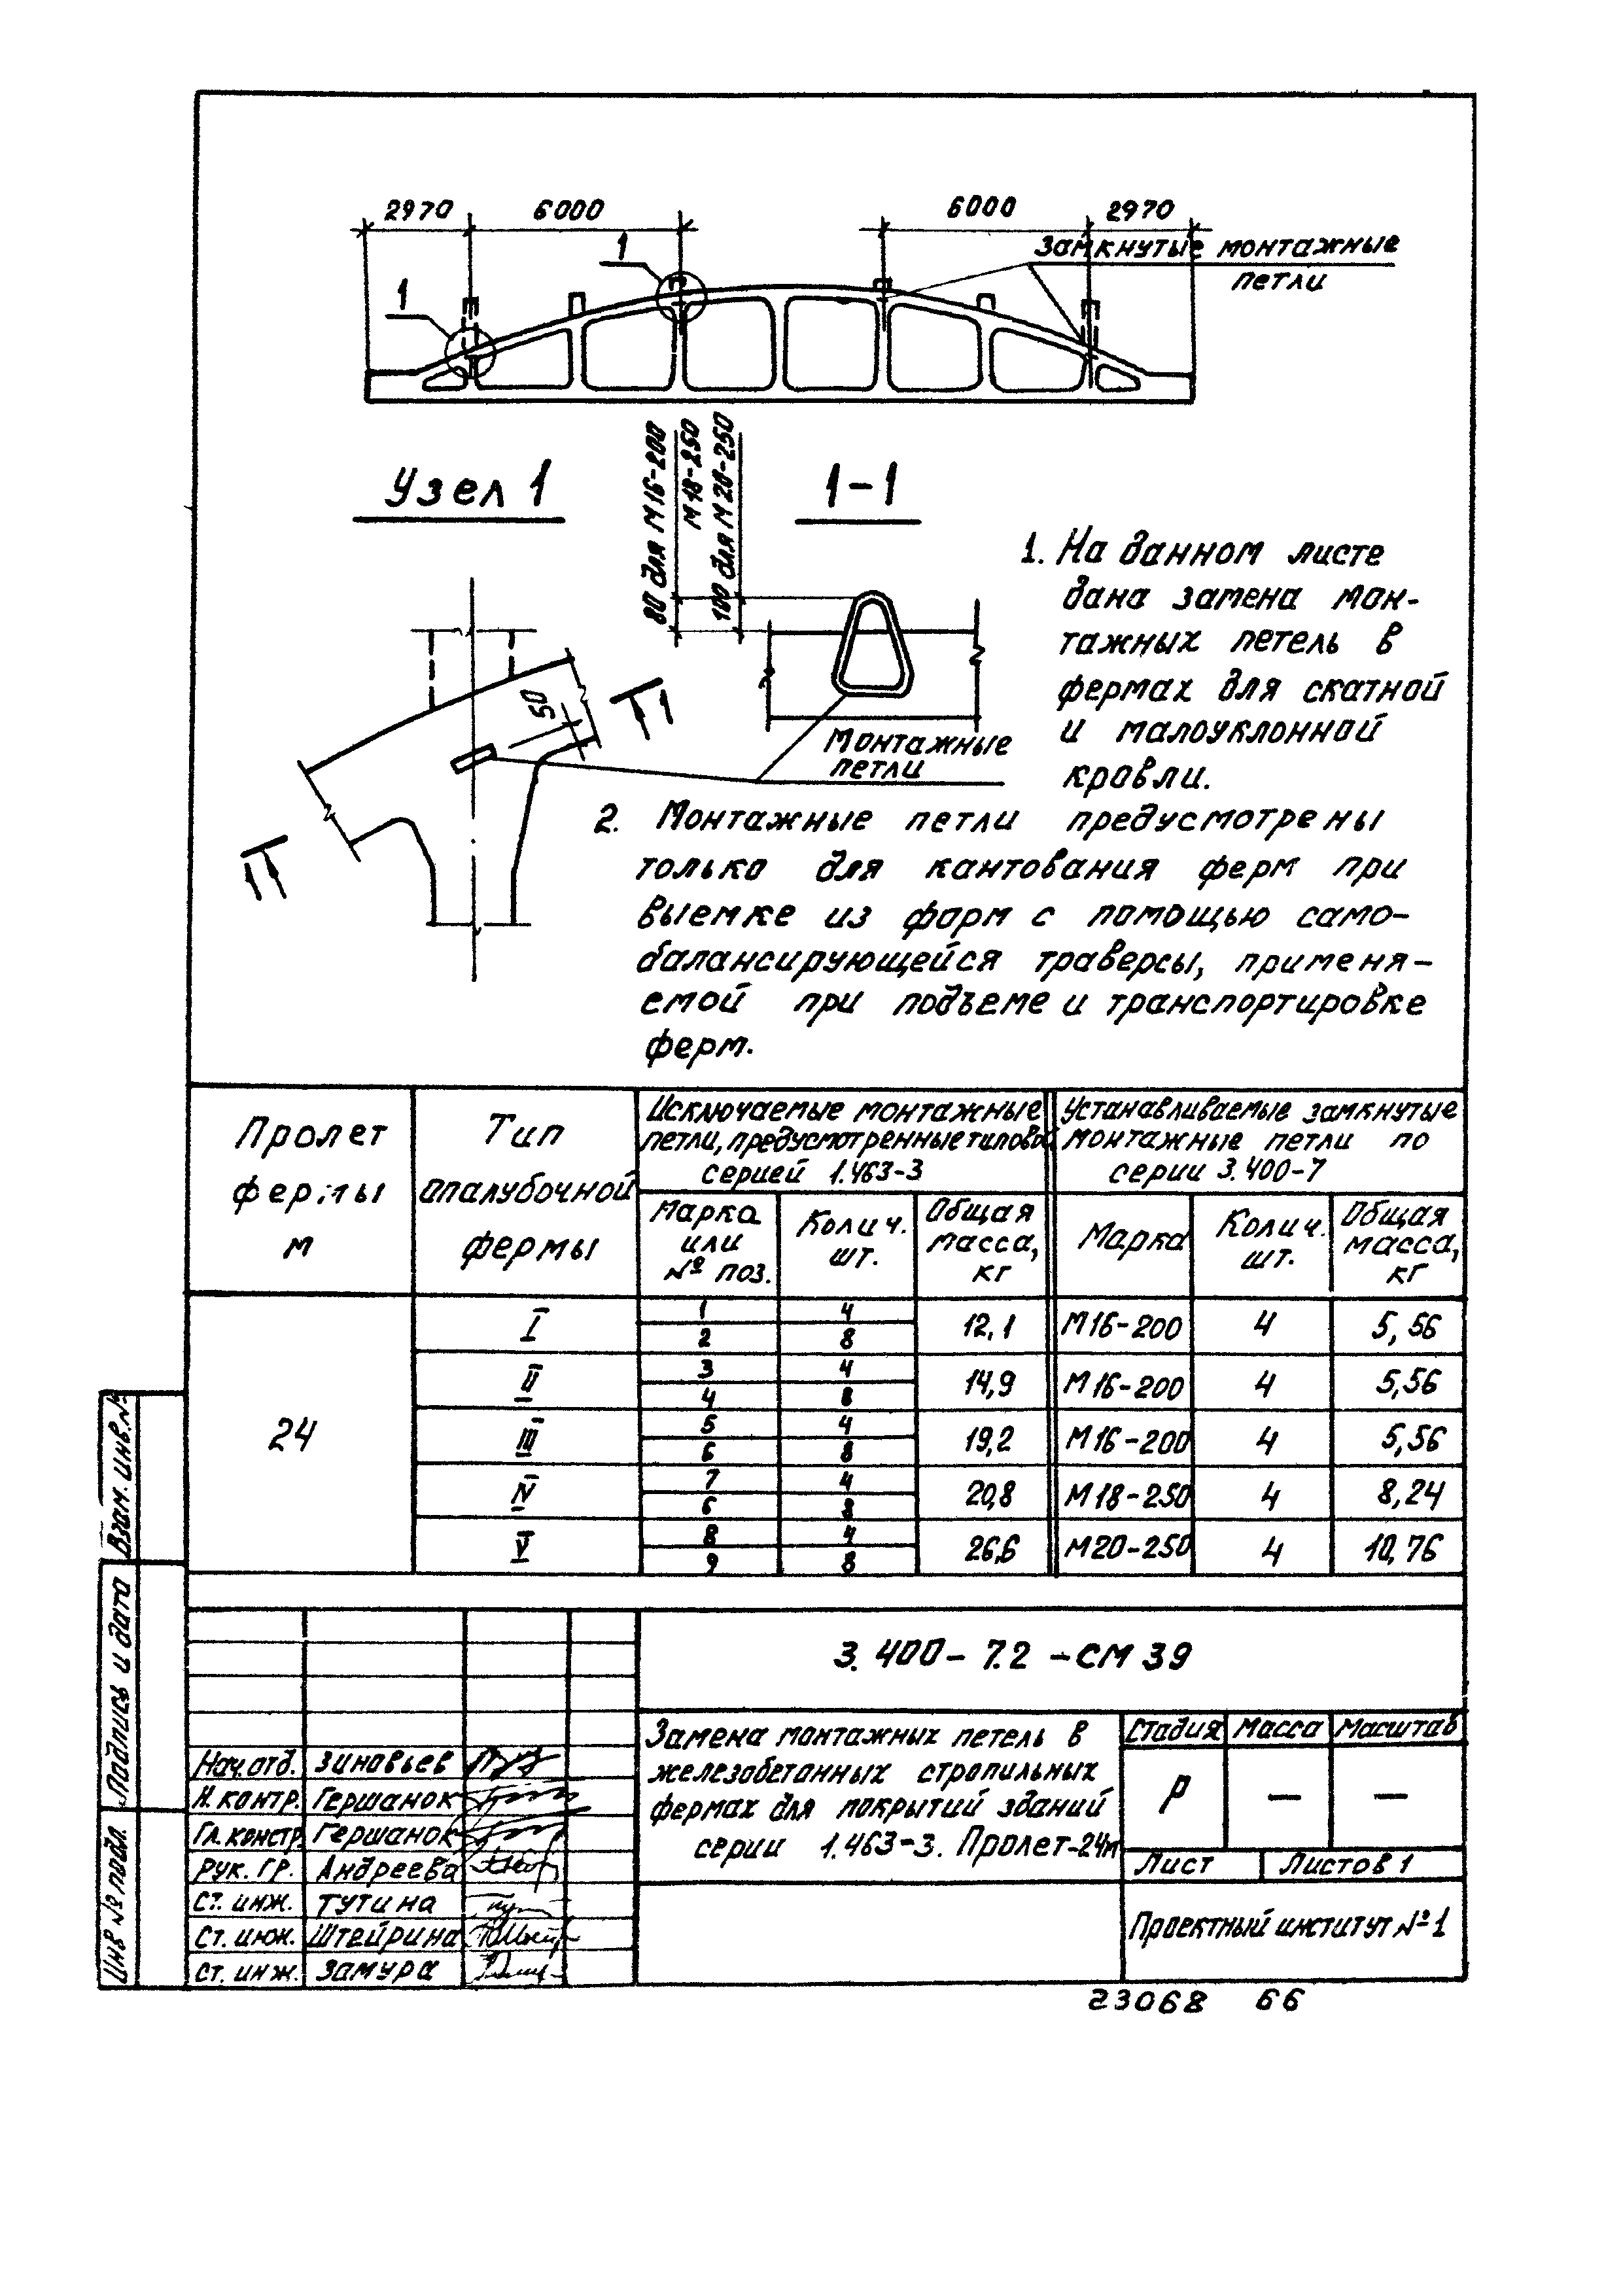 2970 6000 6000 2970
замкнутые монтажные
петли
1
1
Узел 1
1-1
80 для М16-200
М18-250
100 для М20-250
50
1
1
Монтажные
петли
1. На данном листе
дана замена мон-
тажных петель в
фермах для скатной
и малоуклонной
кровли.
2. Монтажные петли предусмотрены
только для кантования ферм при
выемке из форм с помощью само-
балансирующейся траверсы, применя-
емой при подъеме и транспортировке
ферм.
Пролет фермы м
Тип опалубочной фермы
Исключаемые монтажные
петли, предусмотренные типовой
серией 1.463-3
Устанавливаемые замкнутые
монтажные петли по
серии 3.400-7
Марка или № поз. Колич. шт. Общая масса, кг Марка Колич. шт. Общая масса, кг
24
I 1 4 12,1 М16-200 4 5,56
2 8
II 3 4 14,9 М16-200 4 5,56
4 8
III 5 4 19,2 М16-200 4 5,56
6 8
IV 7 4 20,8 М18-250 4 8,24
6 8
V 8 4 26,6 М20-250 4 10,76
9 8
Взам. инв. №
Подпись и дата
Инв № подл.
3.400-7.2-СМ39
Нач. отд. Зиновьев
Н. контр. Гершанок
Гл. констр. Гершанок
Рук. гр. Андреева
Ст. инж. Тутина
Ст. инж. Штейрина
Ст. инж. Замура
Замена монтажных петель в
железобетонных стропильных
фермах для покрытий зданий
серии 1.463-3. Пролет-24м
Стадия Масса Масштаб
Р — —
Лист Листов 1
Проектный институт №1
23068 66